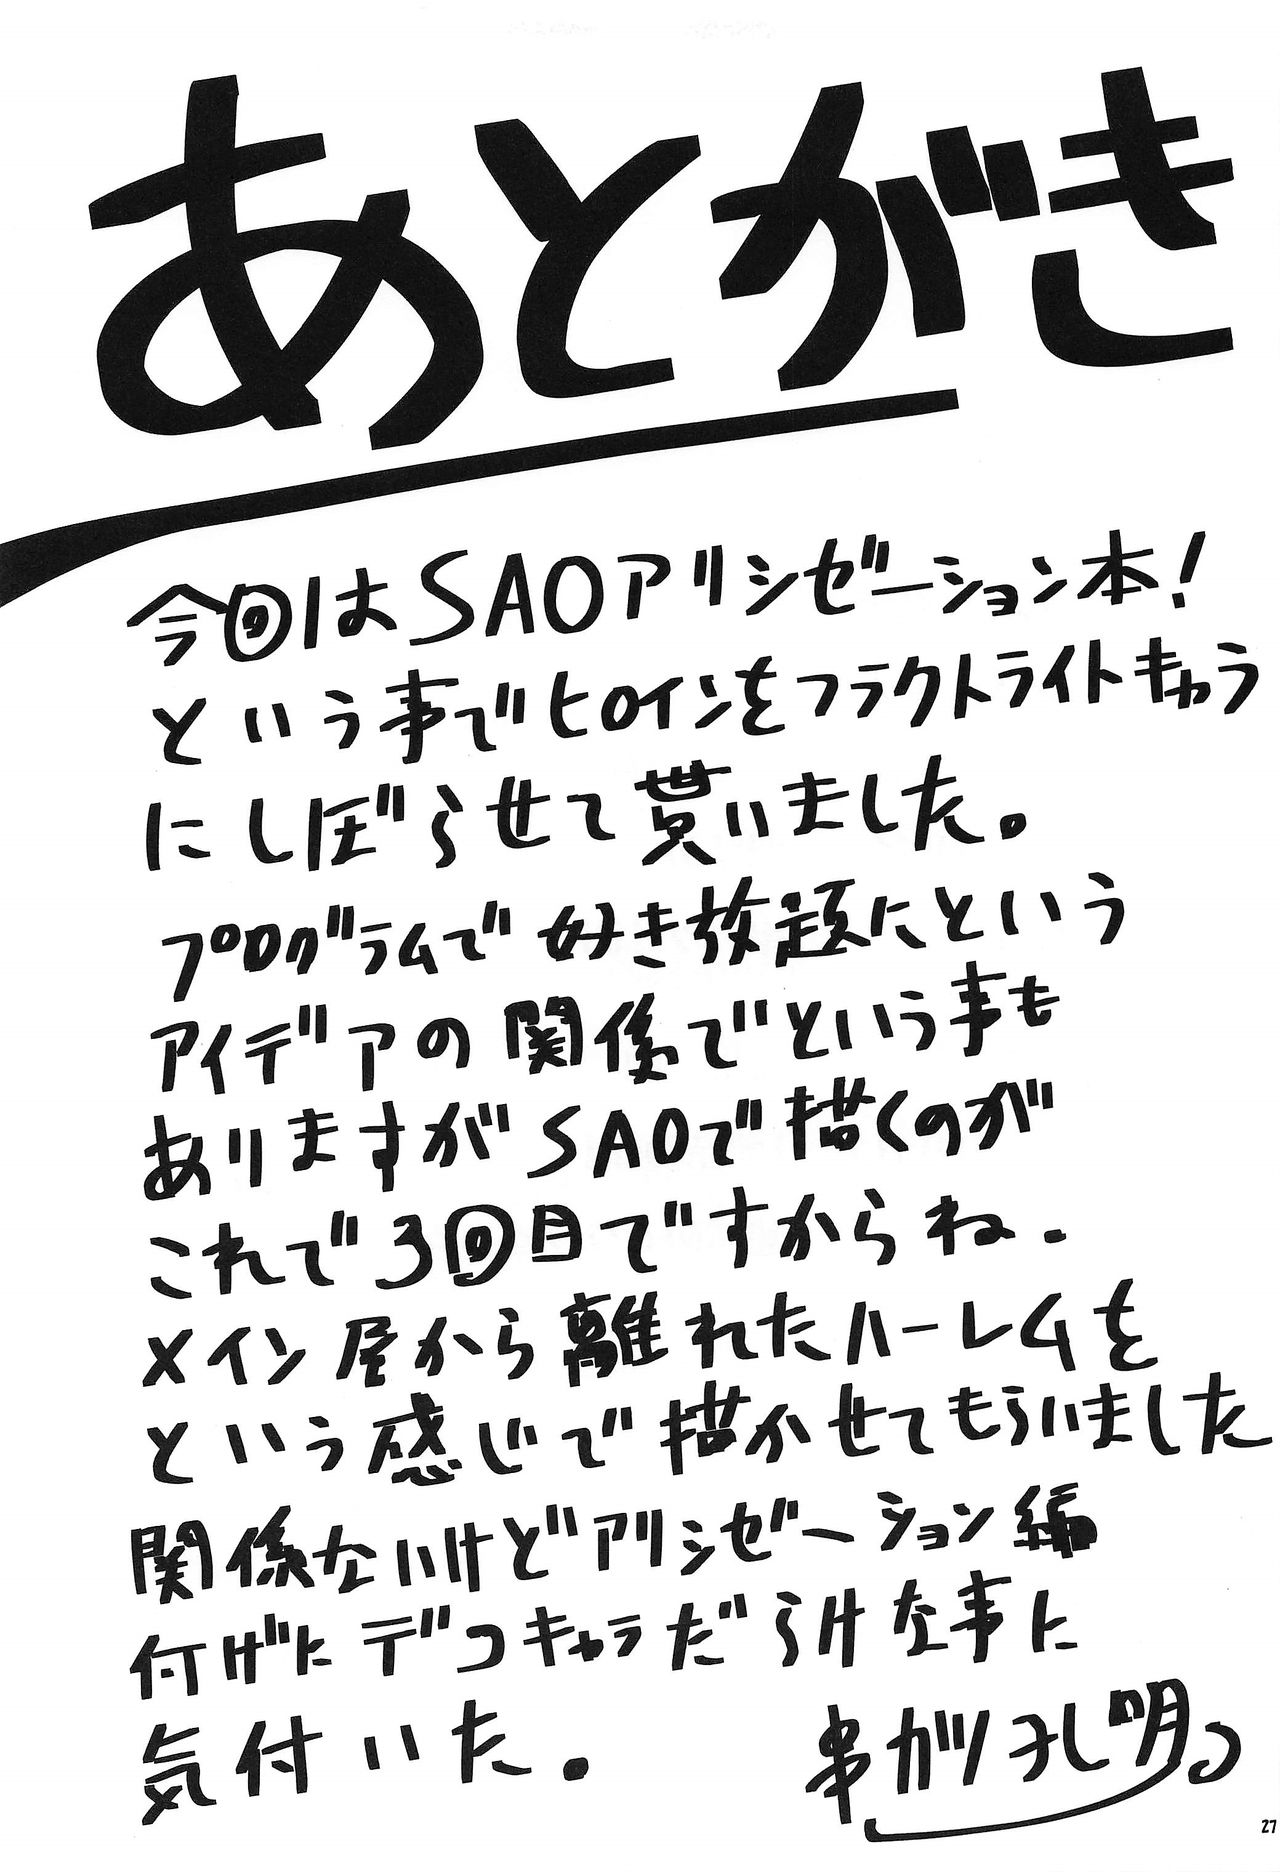 あとがき
今回はSAOアリシゼーション本!
という事でヒロインをフラクトライトキャラ
にしぼらせて貰いました。
プログラムで好き放題にという
アイデアの関係でという事も
ありますがSAOで描くのが
これで3回目ですからね.
メイン屋から離れたハーレムを
という感じで描かせてもらいました
関係ないけどアリシゼーション編
付げにデコキャラだらけな事に
気付いた。
串カツ孔明
27